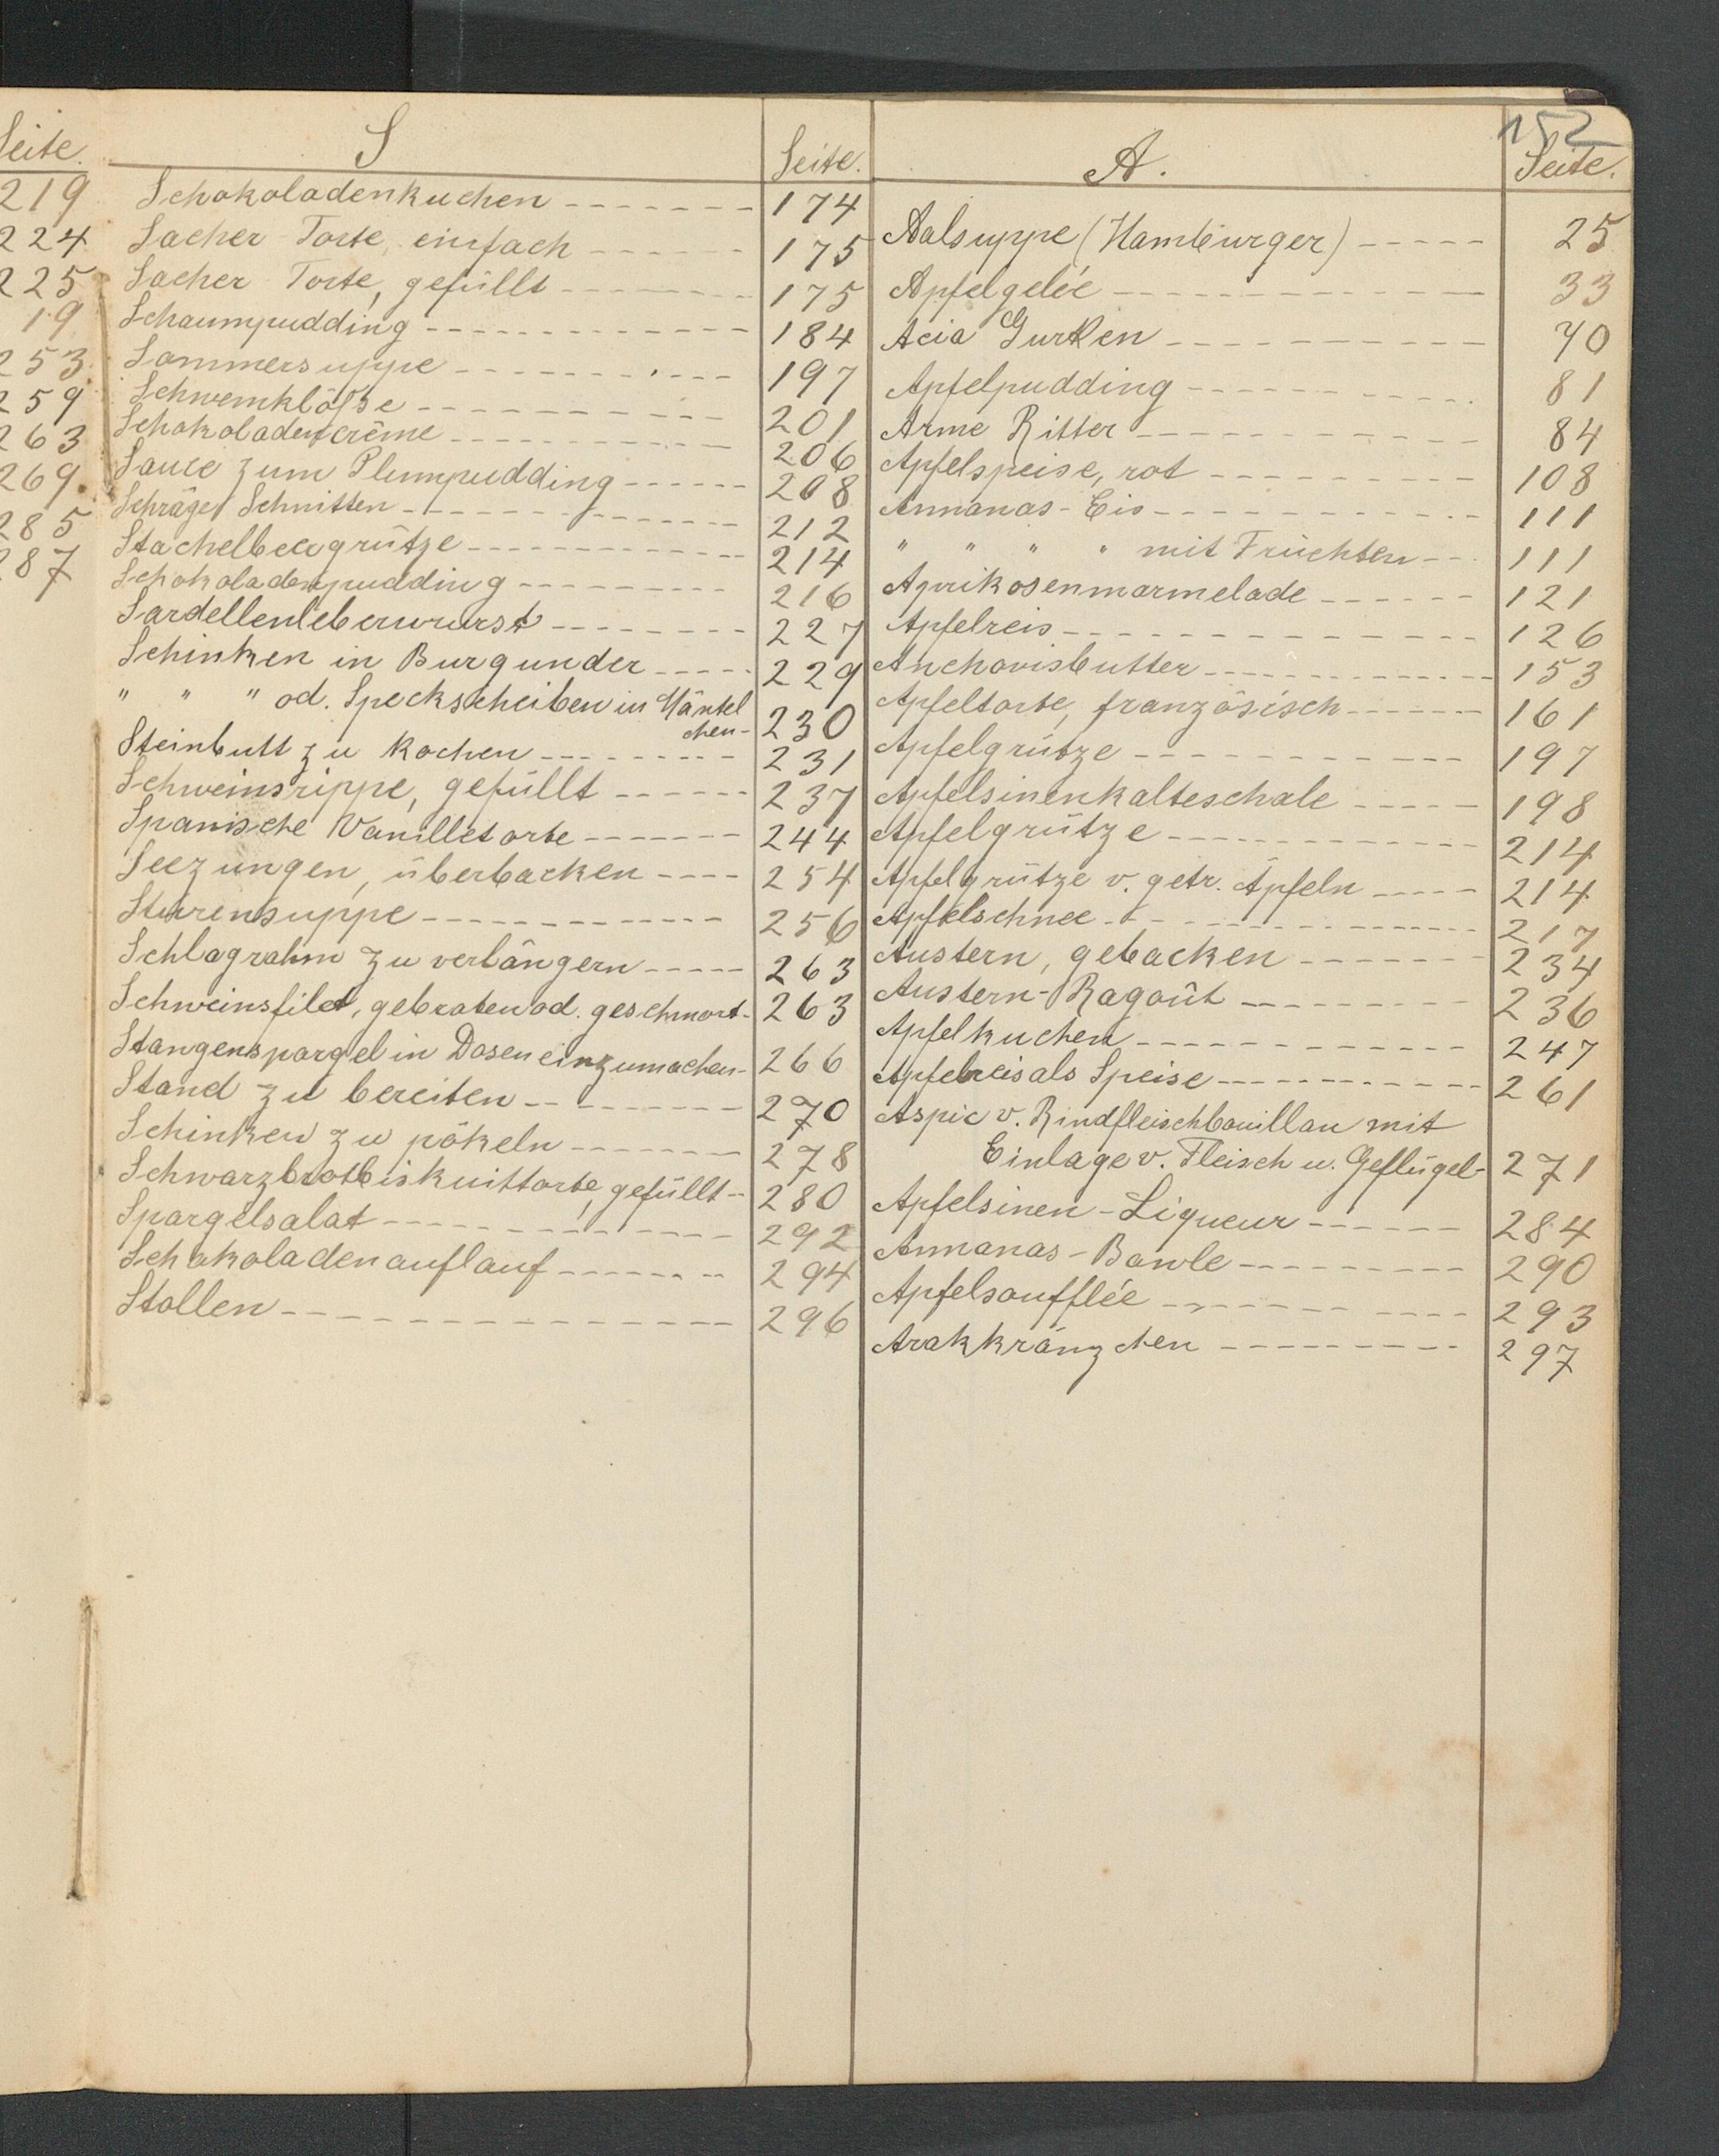 Seite.
219
224
225
19
253
259
263
269
285
287
S
Seite.
Schokoladenkuchen ------- 174
Sacher Torte, einfach ------ 175
Sacher Torte, gefüllt -------- 175
Schaumpudding ------------ 184
Sommersuppe ---------- 197
Schwemklöße ---------- 201
Schokoladencrême ---------- 206
Sauce zum Plumpudding ------ 208
Schräge Schnitten ------------ 212
Stachelbeergrütze ------------ 214
Schokoladenpudding --------- 216
Sardellenleberwurst -------- 227
Schinken in Burgunder ----- 229
" " " od. Speckscheiben in Mäntel
chen- 230
Steinbutt zu kochen --------- 231
Schweinsrippe, gefüllt ------ 237
Spanische Vanilletorte ------- 244
Seezungen, überbacken ---- 254
---------- 256
Schlagrahm zu verlängern ----- 263
Schweinsfilet, gebraten od. geschmort- 263
Stangenspargel in Dosen einzumachen- 266
Stand zu bereiten --------- 270
Schinken zu pökeln ------- 278
Schwarzbrotbiskuittorte, gefüllt-- 280
Spargelsalat ------------ 292
Schokoladenauflauf ------- 294
Stollen --------------- 296
152
A.
Seite.
Aalsuppe (Hamburger) ----- 25
Apfelgelée ------------- 33
Acia Gurken ---------- 70
Apfelpudding ---------- 81
Arme Ritter ------------ 84
Apfelspeise, rot --------- 108
Annanas-Eis ----------- 111
" " " " mit Früchten --- 111
Aprikosenmarmelade ------ 121
Apfelreis -------------- 126
Anchovisbutter ------------ 153
Apfeltorte, französisch ------ 161
Apfelgrütze ----------- 197
Apfelsinenkalteschale ----- 198
Apfelgrütze ------------ 214
Apfelgrütze v. getr. Äpfeln ----- 214
Apfelschnee -------------- 217
Austern, gebacken ------- 234
Austern-Ragoût -------- 236
Apfelkuchen ------------ 247
Apfelreis als Speise ----------- 261
Aspic v. Rindfleischbouillon mit
Einlage v. Fleisch u. Geflügel- 271
Apfelsinen-Liqueur ------ 284
Annanas-Bowle --------- 290
Apfelsoufflée ----------- 293
Arakkränzchen --------- 297